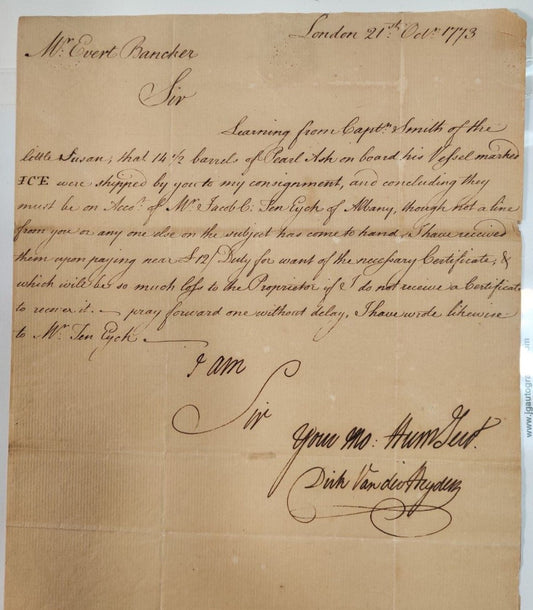 London 21st. Octr. 1773
Mr. Evert Bancker
Sir
Learning from Captn. Smith of the
little Susan, that 14 1/2 barrels of Pearl Ash on board his Vessel marked
ICE were shipped by you to my consignment, and concluding they
must be on Acco. of Mr. Jacob C. Ten Eyck of Albany, though not a line
from you or any one else on the subject has come to hand, I have received
them upon paying near £12/ Duty for want of the necessary Certificate, &
which will be so much loss to the Proprietor if I do not receive a Certificate
to recover it. — pray forward one without delay, I have wrote likewise
to Mr. Ten Eyck. —
I am
Sir
Your Mo: Hum Servt.
Dirk Van der Heyden
www.jgautogr
om